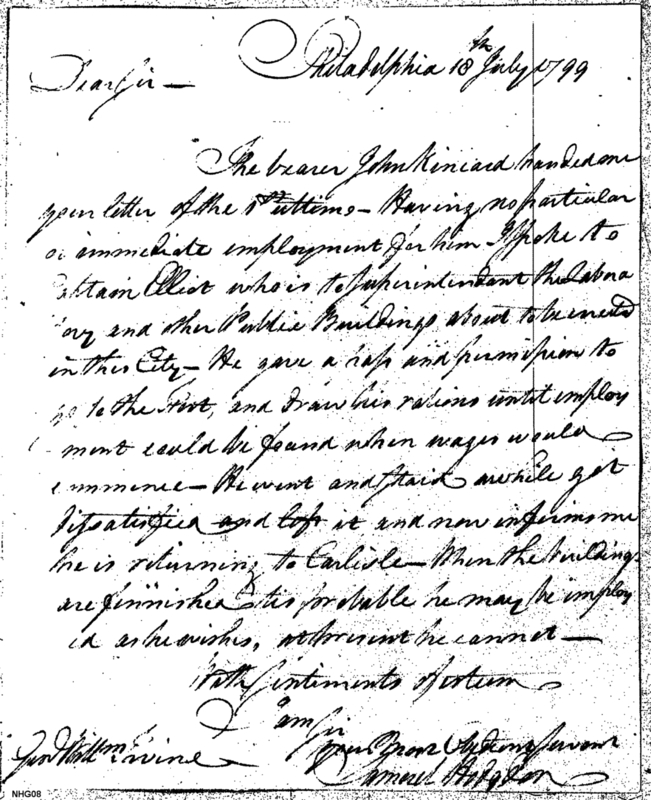 Philadelphia 18th July 1799
Dear Sir —
The bearer John Kincard handed me
your letter of the ultimo — Having no particular
or immediate employment for him I spoke to
Captain Elliot who is to Superintendant the Labora
tory and other Public Buildings about to be erected
in this City — He gave a pass and permission to
go to the and draw his rations until employ
ment could be found when wages would
commence — He went and staid awhile got
dissatisfied and left it and now informs me
he is returning to Carlisle — When the buildings
are finnished tis probable he may be employ
ed as he wishes, at present he cannot —
With Sentiments of esteem
I am Sir
your servant
Samuel Hodgdon
Genl Willm Irvine
NHG08